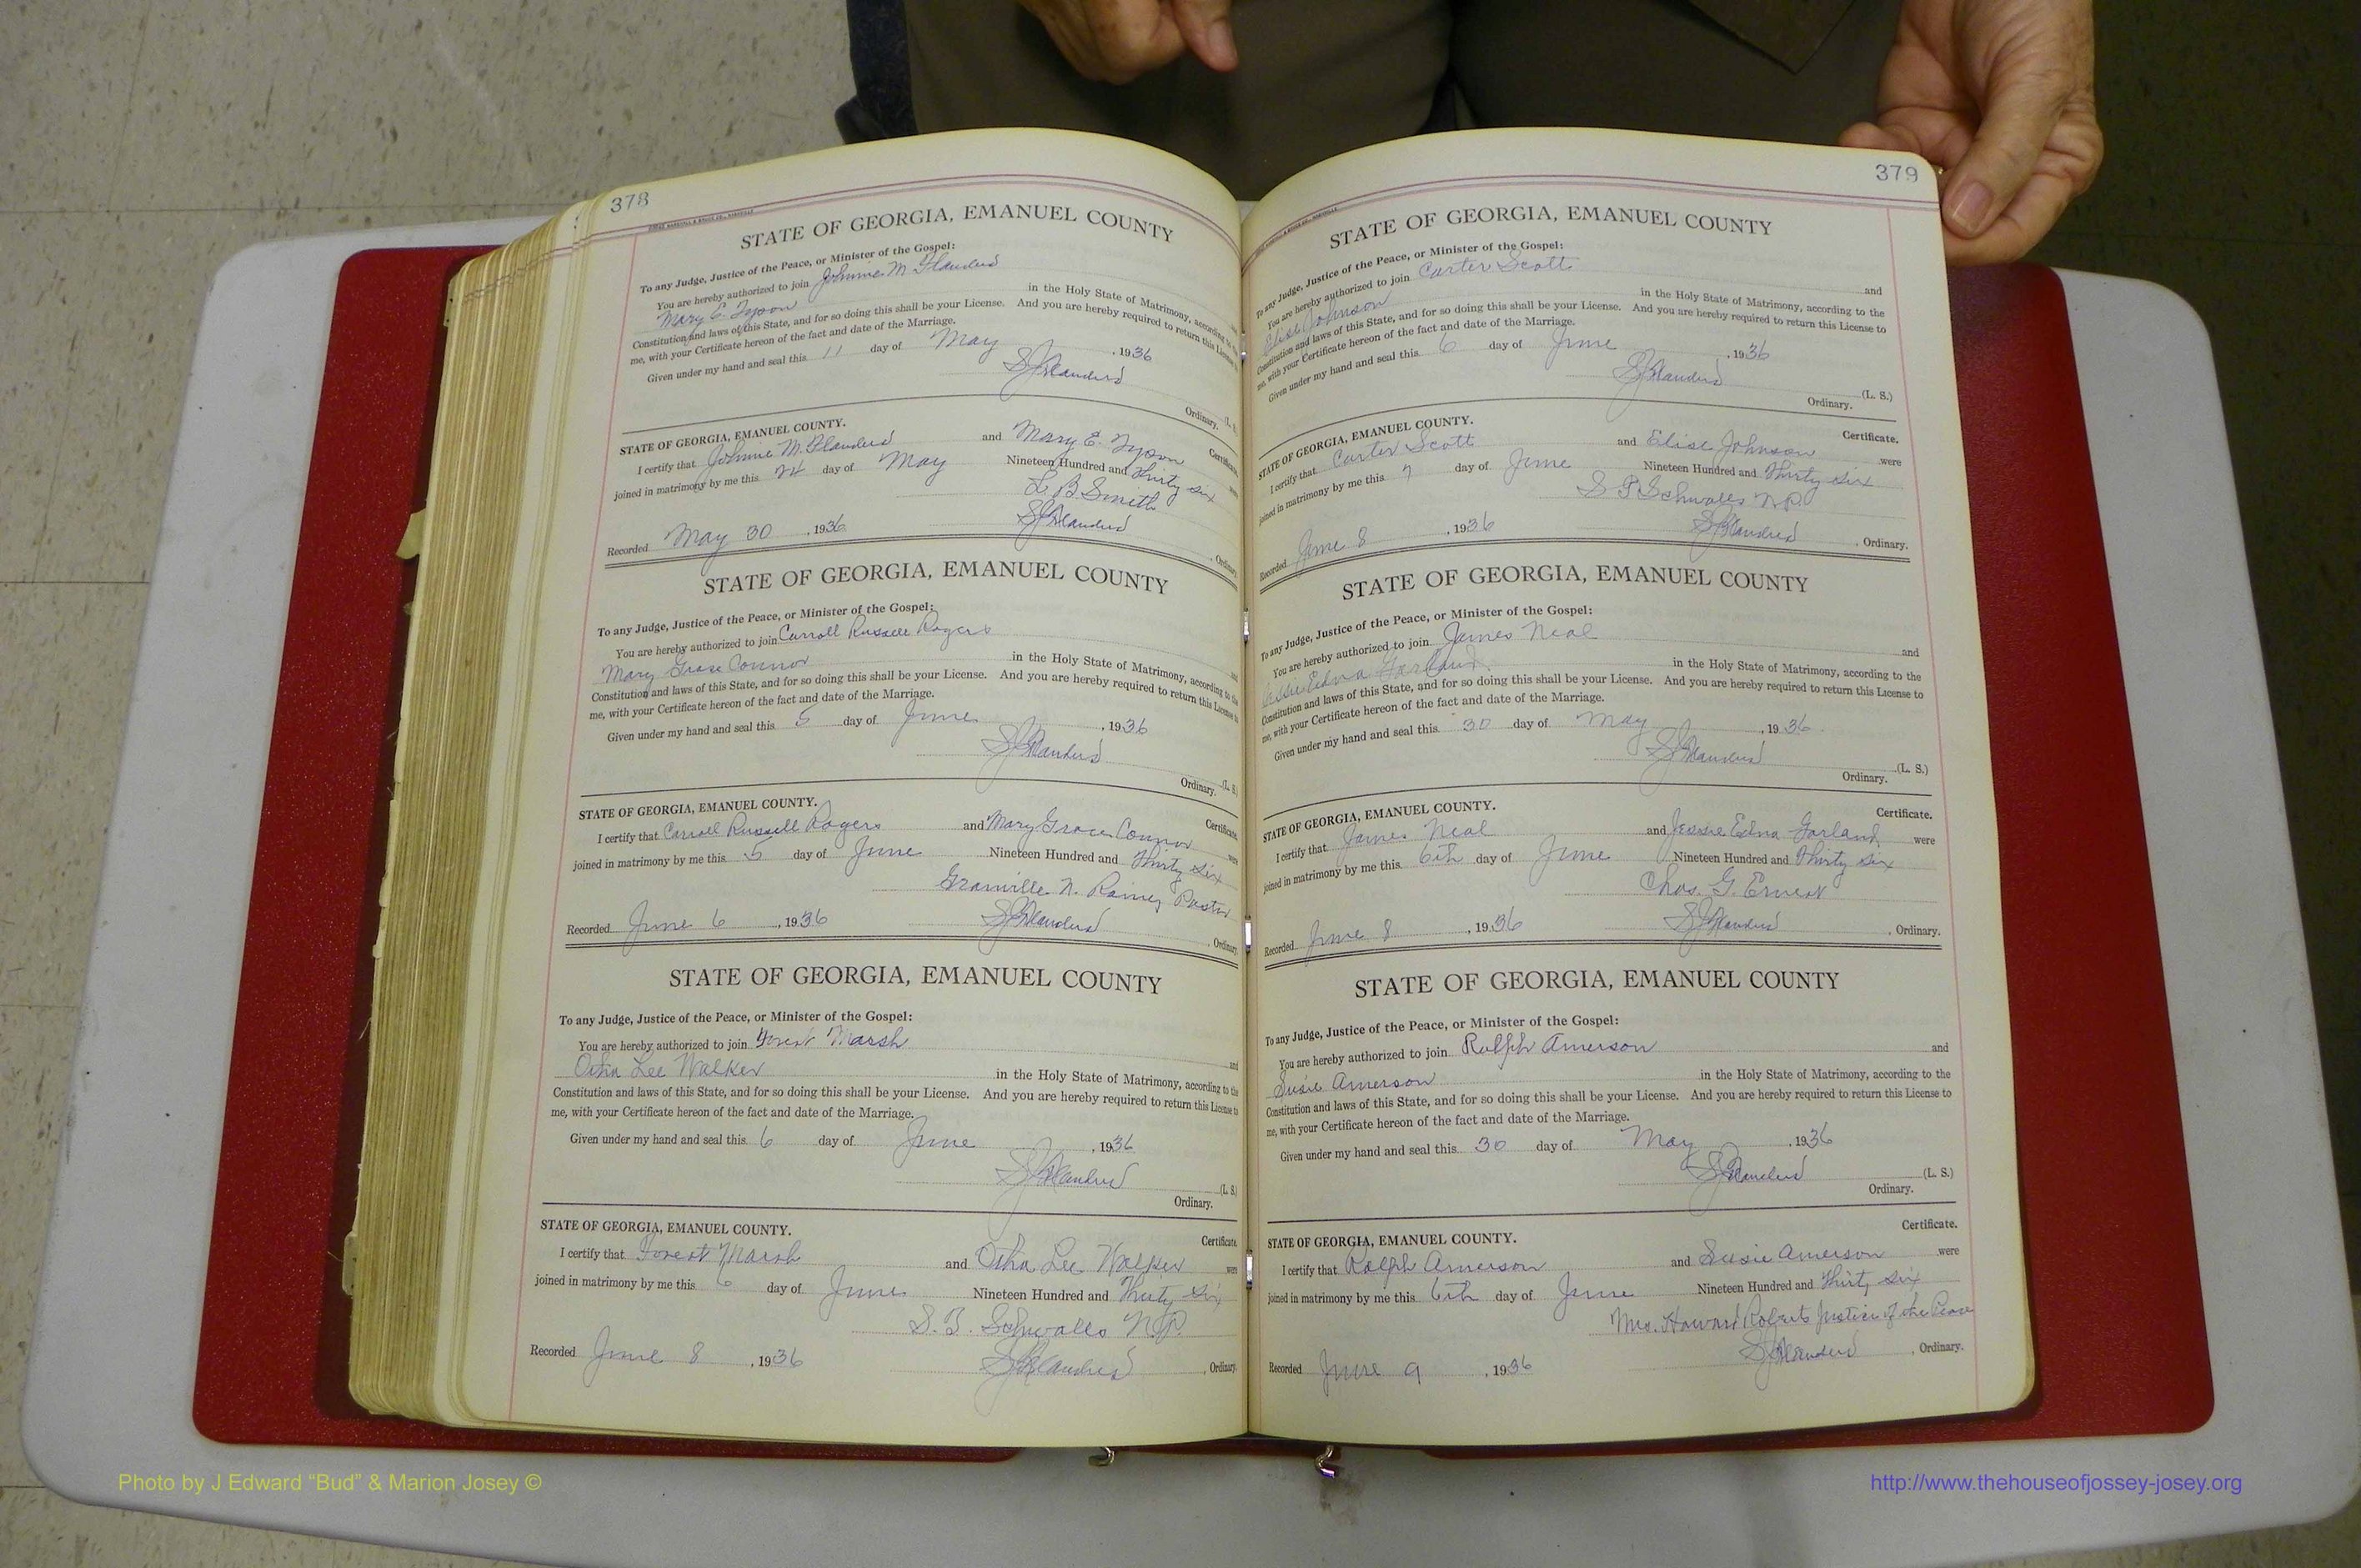 378
STATE OF GEORGIA, EMANUEL COUNTY
To any Judge, Justice of the Peace, or Minister of the Gospel:
You are hereby authorized to join Johnnie M. Flanders
Mary E. Tyson in the Holy State of Matrimony, according
Constitution and laws of this State, and for so doing this shall be your License. And you are hereby required to return this License
me, with your Certificate hereon of the fact and date of the Marriage.
Given under my hand and seal this 11 day of May , 1936
Ordinary. (L. S.
STATE OF GEORGIA, EMANUEL COUNTY. Certificate
I certify that Johnnie M. Flanders and Mary E. Tyson
joined in matrimony by me this 24 day of May Nineteen Hundred and Thirty Six
L. B. Smith
Recorded May 30 , 1936 , Ordinary
STATE OF GEORGIA, EMANUEL COUNTY
To any Judge, Justice of the Peace, or Minister of the Gospel:
You are hereby authorized to join Carroll Russell Rogers
Mary Grace Connor in the Holy State of Matrimony, according to the
Constitution and laws of this State, and for so doing this shall be your License. And you are hereby required to return this License to
me, with your Certificate hereon of the fact and date of the Marriage.
Given under my hand and seal this 5 day of June , 1936
Ordinary. (L. S.)
STATE OF GEORGIA, EMANUEL COUNTY. Certificate.
I certify that Carroll Russell Rogers and Mary Grace Connor were
joined in matrimony by me this 5 day of June Nineteen Hundred and Thirty Six
Granville N. Rainey Pastor
Recorded June 6 , 1936 , Ordinary.
STATE OF GEORGIA, EMANUEL COUNTY
To any Judge, Justice of the Peace, or Minister of the Gospel:
You are hereby authorized to join Forest Marsh and
Otha Lee Walker in the Holy State of Matrimony, according to the
Constitution and laws of this State, and for so doing this shall be your License. And you are hereby required to return this License to
me, with your Certificate hereon of the fact and date of the Marriage.
Given under my hand and seal this 6 day of June , 1936
(L. S.)
Ordinary.
STATE OF GEORGIA, EMANUEL COUNTY. Certificate.
I certify that Forest Marsh and Otha Lee Walker were
joined in matrimony by me this 6 day of June Nineteen Hundred and Thirty Six
Schwalls N.P.
Recorded June 8 , 1936 , Ordinary.
379
STATE OF GEORGIA, EMANUEL COUNTY
To any Judge, Justice of the Peace, or Minister of the Gospel:
You are hereby authorized to join Carter Scott and
Elise Johnson in the Holy State of Matrimony, according to the
Constitution and laws of this State, and for so doing this shall be your License. And you are hereby required to return this License to
me, with your Certificate hereon of the fact and date of the Marriage.
Given under my hand and seal this 6 day of June , 1936
(L. S.)
Ordinary.
STATE OF GEORGIA, EMANUEL COUNTY. Certificate.
I certify that Carter Scott and Elise Johnson were
joined in matrimony by me this 7 day of June Nineteen Hundred and Thirty Six
Schwalls N.P.
Recorded June 8 , 1936 , Ordinary.
STATE OF GEORGIA, EMANUEL COUNTY
To any Judge, Justice of the Peace, or Minister of the Gospel:
You are hereby authorized to join James Neal and
Edna Garland in the Holy State of Matrimony, according to the
Constitution and laws of this State, and for so doing this shall be your License. And you are hereby required to return this License to
me, with your Certificate hereon of the fact and date of the Marriage.
Given under my hand and seal this 30 day of May , 1936
(L. S.)
Ordinary.
STATE OF GEORGIA, EMANUEL COUNTY. Certificate.
I certify that James Neal and Jessie Edna Garland were
joined in matrimony by me this 6th day of June Nineteen Hundred and Thirty Six
Chas. G. Ernest
Recorded June 8 , 1936 , Ordinary.
STATE OF GEORGIA, EMANUEL COUNTY
To any Judge, Justice of the Peace, or Minister of the Gospel:
You are hereby authorized to join Ralph Amerson and
Susie Amerson in the Holy State of Matrimony, according to the
Constitution and laws of this State, and for so doing this shall be your License. And you are hereby required to return this License to
me, with your Certificate hereon of the fact and date of the Marriage.
Given under my hand and seal this 30 day of May , 1936
(L. S.)
Ordinary.
STATE OF GEORGIA, EMANUEL COUNTY. Certificate.
I certify that Ralph Amerson and Susie Amerson were
joined in matrimony by me this 6th day of June Nineteen Hundred and Thirty Six
Mrs. Howard Roberts Justice of the Peace
Recorded June 9 , 1936 , Ordinary.
Photo by J Edward “Bud” & Marion Josey ©
http://www.thehouseofjossey-josey.org